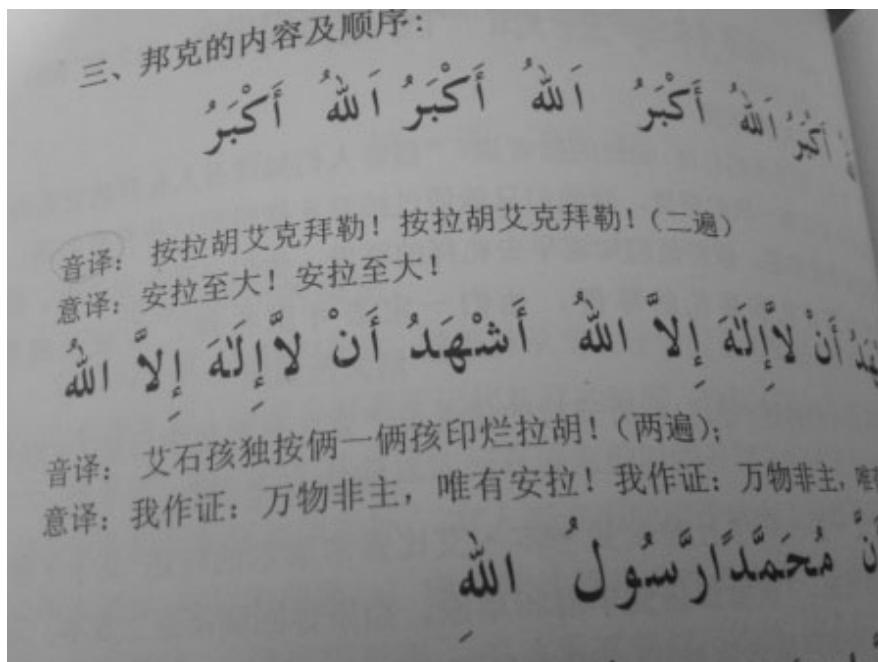 三、邦克的内容及顺序：
اَللهُ أَكْبَرُ اَللهُ أَكْبَرُ اَللهُ أَكْبَرُ اَللهُ أَكْبَرُ
音译： 按拉胡艾克拜勒！按拉胡艾克拜勒！（二遍）
意译：安拉至大！安拉至大！
أَنْ لاَّإِلَهَ إِلاَّ اللهُ أَشْهَدُ أَنْ لاَّإِلَهَ إِلاَّ اللهُ
音译： 艾石孩独按俩一俩孩印烂拉胡！（两遍）；
意译：我作证：万物非主，唯有安拉！我作证：万物非主，唯
مُحَمَّدًارَّسُولُ اللهِ